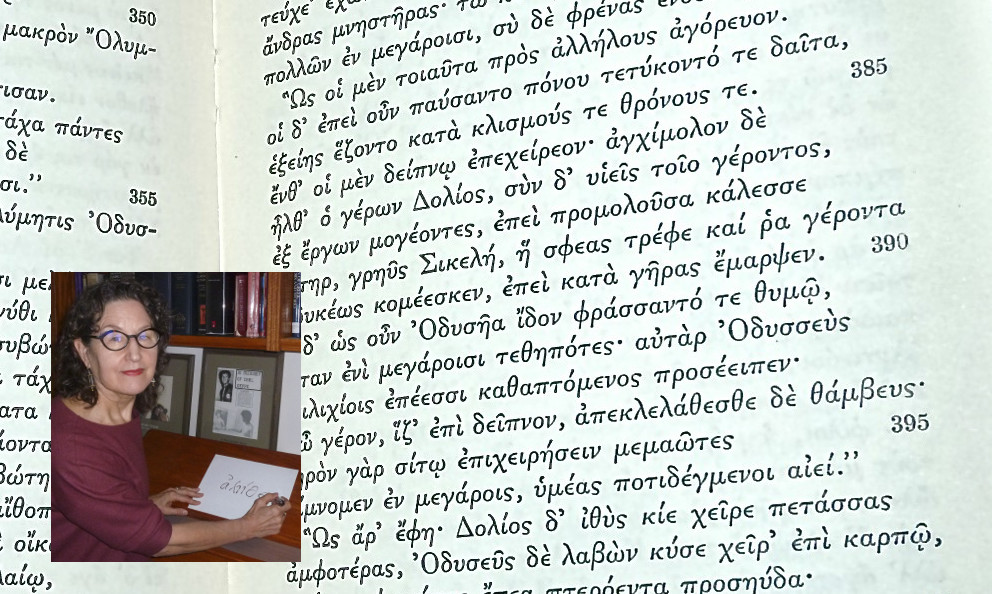 350
μακρὸν Ὄλυμ-
τισαν.
τάχα πάντες
δὲ
σι.’’
355
λύμητις Ὀδυσ-
ἄνδρας μνηστῆρας·
πολλῶν ἐν μεγάροισι, σὺ δὲ φρένας
Ὣς οἱ μὲν τοιαῦτα πρὸς ἀλλήλους ἀγόρευον.
οἱ δ’ ἐπεὶ οὖν παύσαντο πόνου τετύκοντό τε δαῖτα,
ἑξείης ἕζοντο κατὰ κλισμούς τε θρόνους τε. 385
ἔνθ’ οἱ μὲν δείπνῳ ἐπεχείρεον· ἀγχίμολον δὲ
ἦλθ’ ὁ γέρων Δολίος, σὺν δ’ υἱεῖς τοῖο γέροντος,
ἐξ ἔργων μογέοντες, ἐπεὶ προμολοῦσα κάλεσσε
τηρ, γρηῦς Σικελή, ἥ σφεας τρέφε καί ῥα γέροντα
υκέως κομέεσκεν, ἐπεὶ κατὰ γῆρας ἔμαρψεν. 390
δ’ ὡς οὖν Ὀδυσῆα ἴδον φράσσαντό τε θυμῷ,
ταν ἐνὶ μεγάροισι τεθηπότες· αὐτὰρ Ὀδυσσεὺς
ιλιχίοις ἐπέεσσι καθαπτόμενος προσέειπεν·
ὦ γέρον, ἵζ’ ἐπὶ δεῖπνον, ἀπεκλελάθεσθε δὲ θάμβευς·
ρὸν γὰρ σίτῳ ἐπιχειρήσειν μεμαῶτες 395
μνομεν ἐν μεγάροις, ὑμέας ποτιδέγμενοι αἰεί.’’
Ὣς ἄρ’ ἔφη· Δολίος δ’ ἰθὺς κίε χεῖρε πετάσσας
ἀμφοτέρας, Ὀδυσεῦς δὲ λαβὼν κύσε χεῖρ’ ἐπὶ καρπῷ,
πτερόεντα προσηύδα·